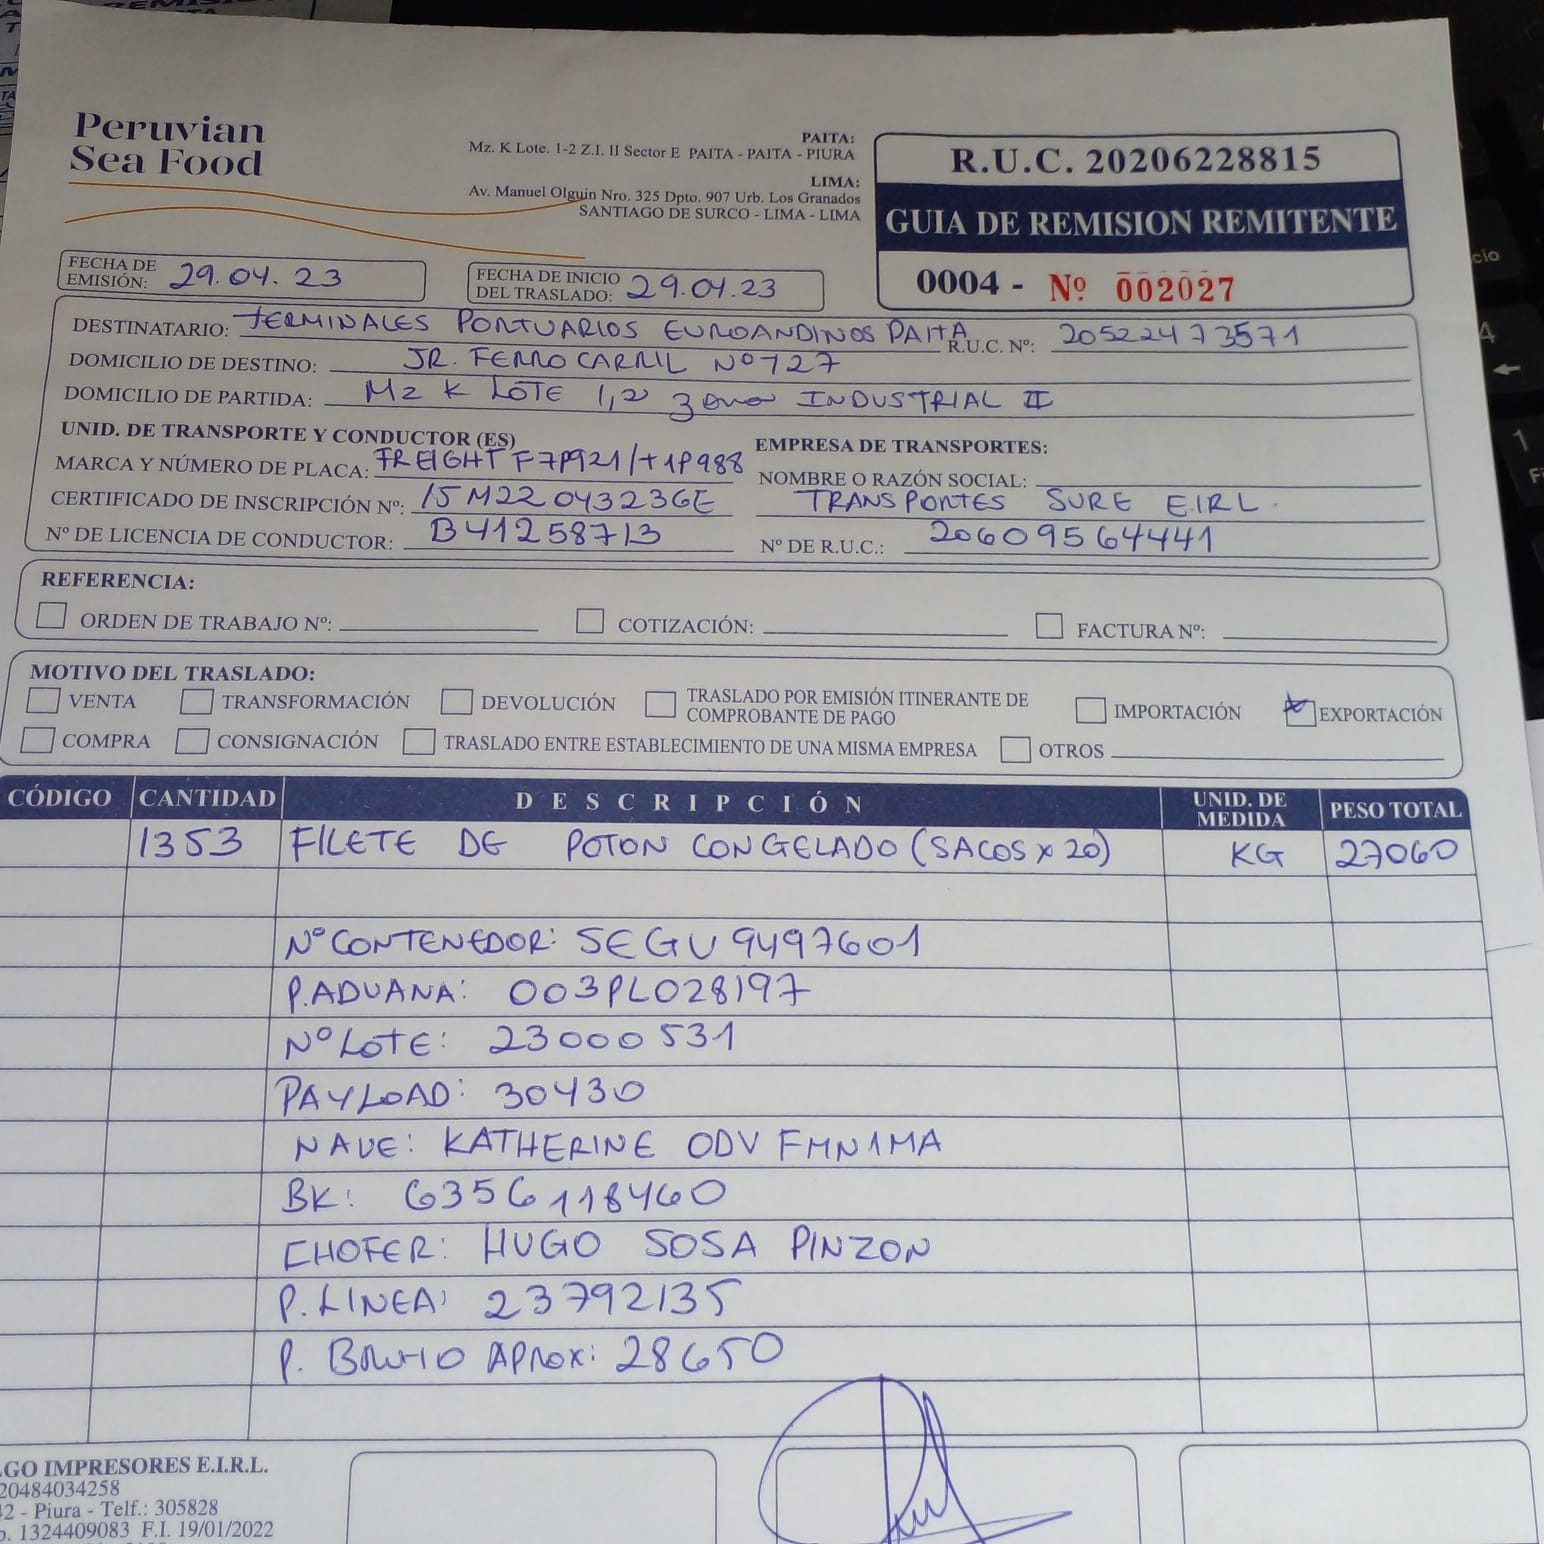 Peruvian
Sea Food
PAITA:
Mz. K Lote. 1-2 Z.I. II Sector E PAITA - PAITA - PIURA
LIMA:
Av. Manuel Olguin Nro. 325 Dpto. 907 Urb. Los Granados
SANTIAGO DE SURCO - LIMA - LIMA
R.U.C. 20206228815
GUIA DE REMISION REMITENTE
0004 - Nº 002027
FECHA DE EMISIÓN: 29.04.23
FECHA DE INICIO DEL TRASLADO: 29.04.23
DESTINATARIO: TERMINALES PORTUARIOS EUROANDINOS PAITA R.U.C. Nº: 20522473571
DOMICILIO DE DESTINO: JR. FERROCARRIL Nº 727
DOMICILIO DE PARTIDA: Mz K LOTE 1,2 zona INDUSTRIAL II
UNID. DE TRANSPORTE Y CONDUCTOR (ES)
MARCA Y NÚMERO DE PLACA: FREIGHT F7P921/T1P988
CERTIFICADO DE INSCRIPCIÓN Nº: 15M22043236E
Nº DE LICENCIA DE CONDUCTOR: B41258713
EMPRESA DE TRANSPORTES:
NOMBRE O RAZÓN SOCIAL:
TRANSPORTES SURE E.I.R.L.
Nº DE R.U.C.: 20609564441
REFERENCIA:
ORDEN DE TRABAJO Nº: COTIZACIÓN: FACTURA Nº:
MOTIVO DEL TRASLADO:
VENTA TRANSFORMACIÓN DEVOLUCIÓN TRASLADO POR EMISIÓN ITINERANTE DE COMPROBANTE DE PAGO IMPORTACIÓN EXPORTACIÓN
COMPRA CONSIGNACIÓN TRASLADO ENTRE ESTABLECIMIENTO DE UNA MISMA EMPRESA OTROS
CÓDIGO CANTIDAD DESCRIPCIÓN UNID. DE MEDIDA PESO TOTAL
1353 FILETE DE POTON CONGELADO (SACOS x 20) KG 27060
Nº CONTENEDOR: SEGU 9497601
P.ADUANA: 003PL028197
Nº LOTE: 23000531
PAYLOAD: 30430
NAVE: KATHERINE ODV FMN1MA
BK: 6356118460
CHOFER: HUGO SOSA PINZON
P. LINEA: 23792135
P. BRUTO APROX: 28650
GO IMPRESORES E.I.R.L.
20484034258
2 - Piura - Telf.: 305828
1324409083 F.I. 19/01/2022